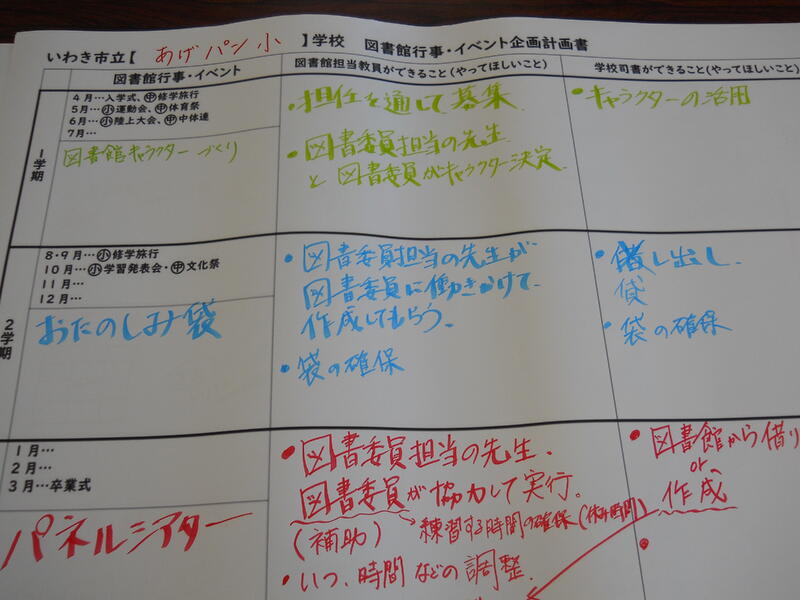 いわき市立【 あげパン小 】学校 図書館行事・イベント企画計画書
図書館行事・イベント
図書館担当教員ができること(やってほしいこと)
学校司書ができること(やってほしいこと)
1学期
4月…入学式、㊥修学旅行
5月…小運動会、㊥体育祭
6月…小陸上大会、㊥中体連
7月…
図書館キャラクターづくり
・担任を通して募集
・図書委員担当の先生
と図書委員がキャラクター決定.
・キャラクターの活用
2学期
8・9月…小修学旅行
10月…小学習発表会・㊥文化祭
11月…
12月…
おたのしみ袋
・図書委員担当の先生が
図書委員に働きかけて
作成してもらう。
・袋の確保
・借し出し.
貸
・袋の確保
1月…
2月…
3月…卒業式
パネルシアター
・図書委員担当の先生.
図書委員が協力して実行。
(補助)
練習する時間の確保(休み時間)
・いつ、時間などの調整.
・図書館から借り
or
作成